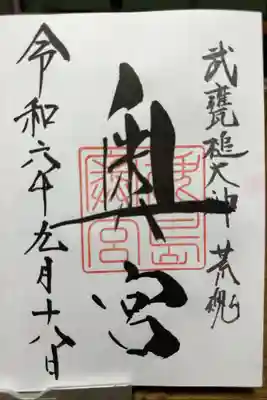 武甕槌大神 荒魂
奥宮
令和六年九月十八日